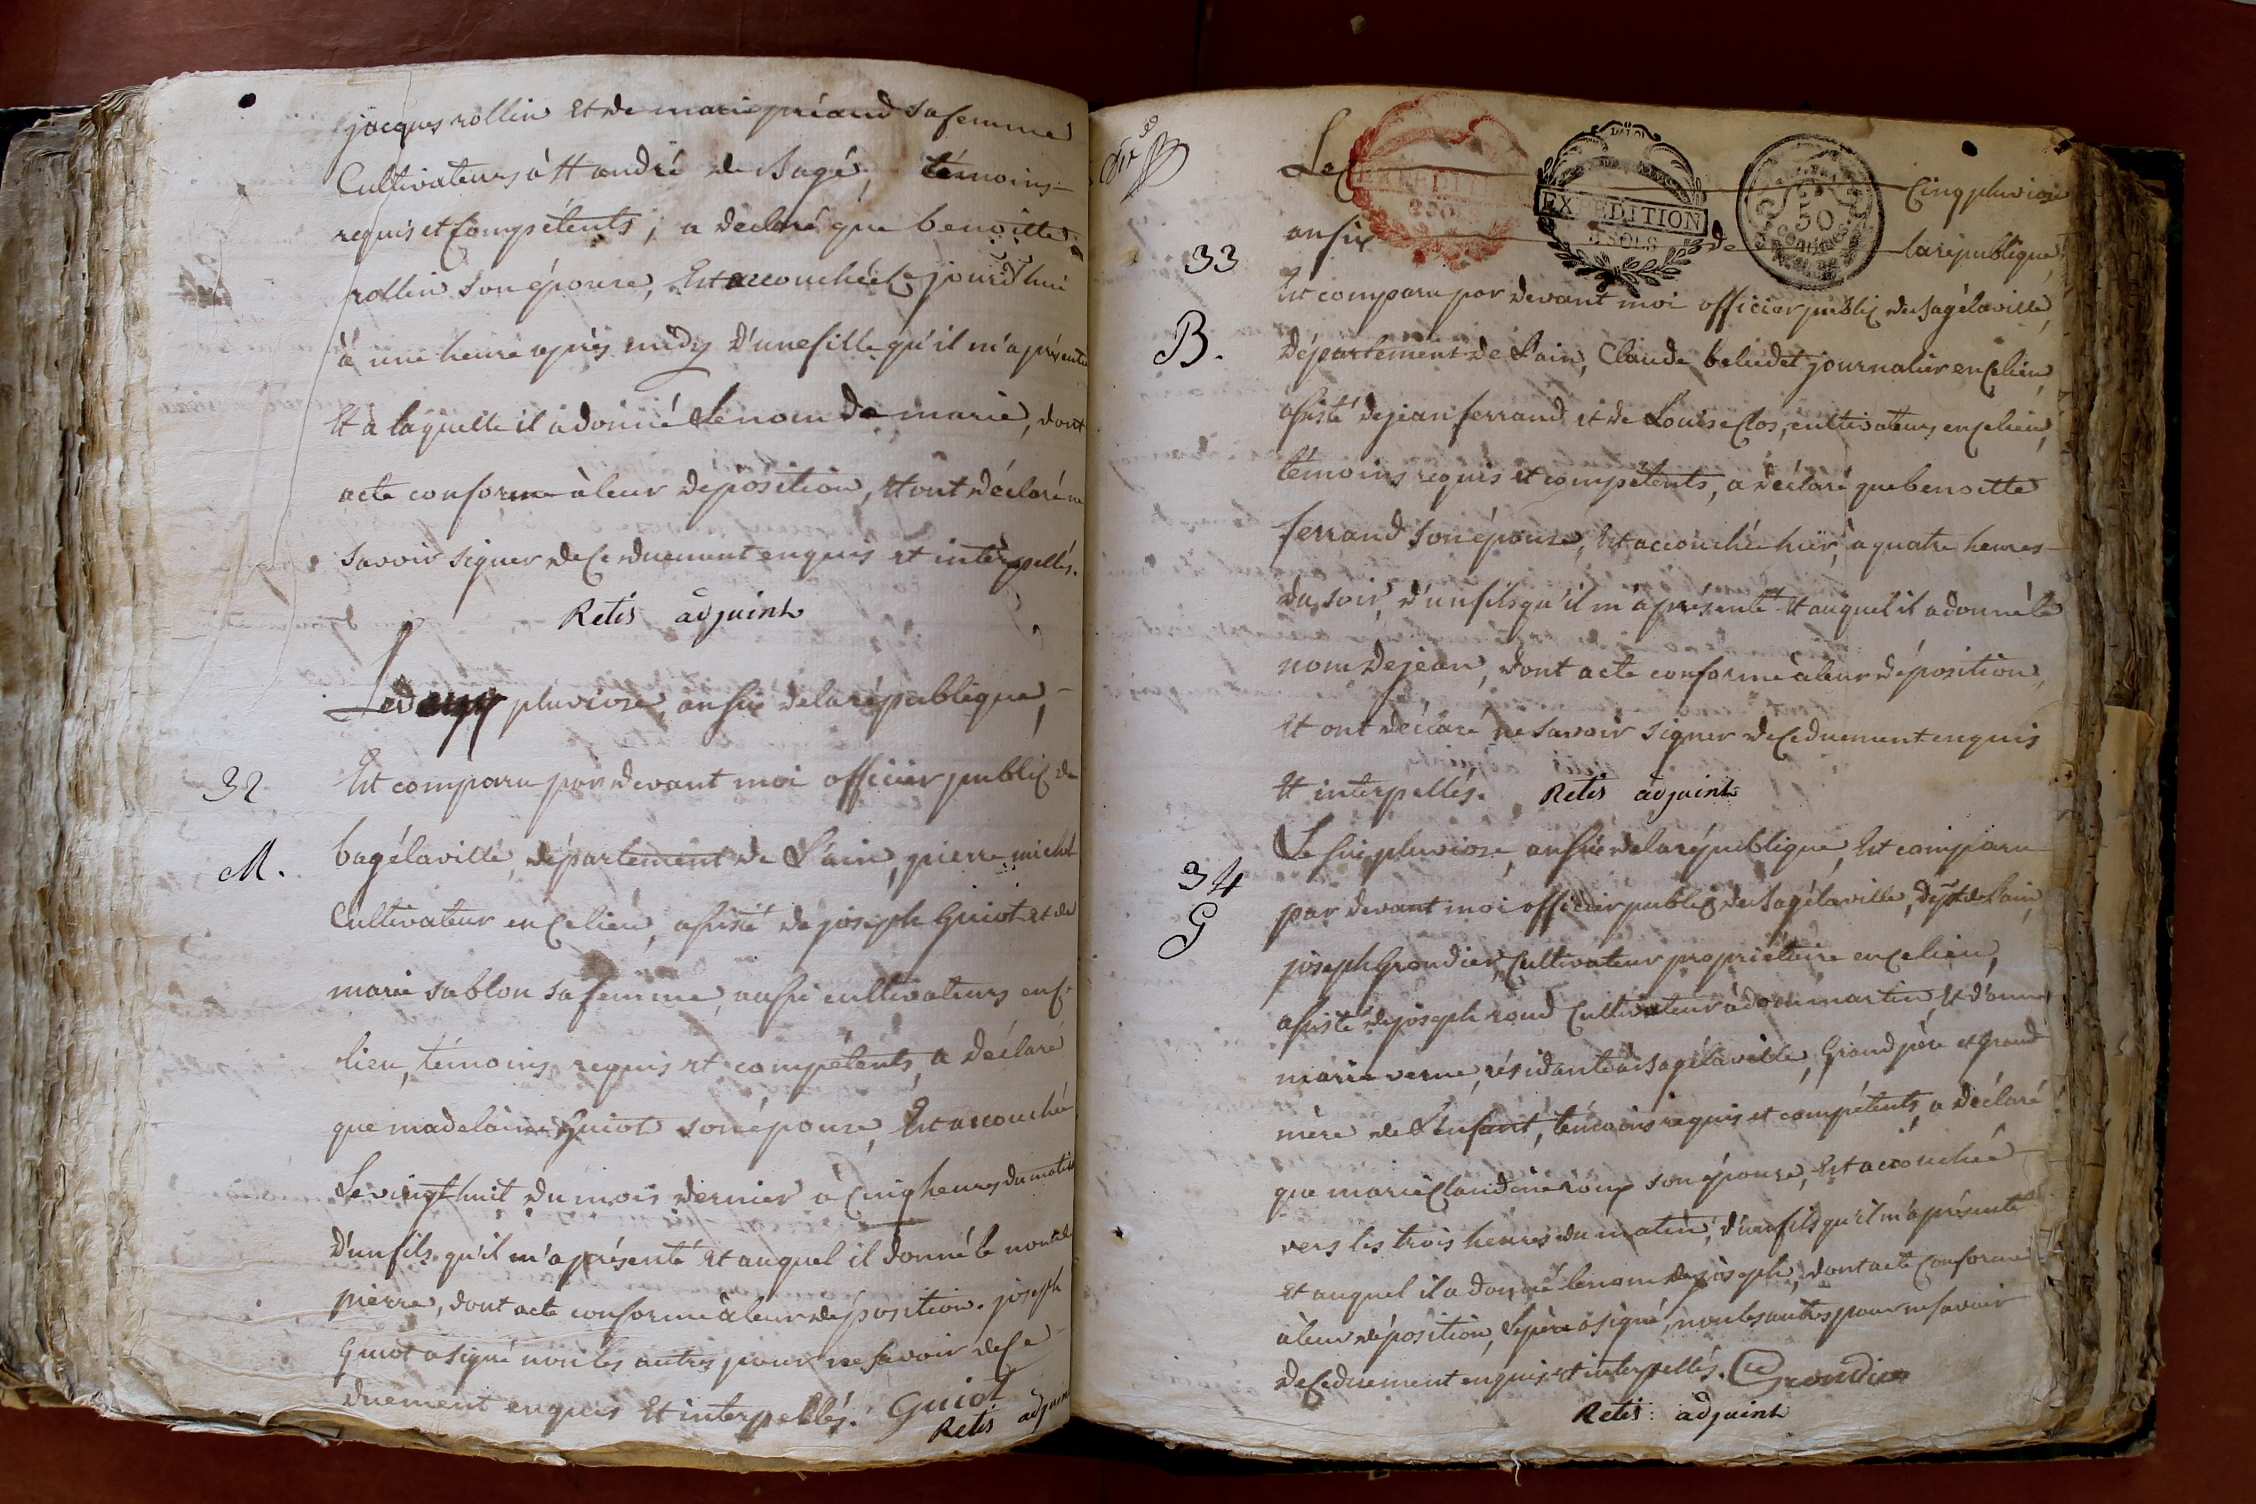 jacques rollin Et de marie priand sa femme
Cultivateurs à St andré de Bagé, témoins
requis et Compétents, a déclaré que benoitte
rollin son épouse, Est accouchée jourd'hui
à une heure après midy D'une fille qu'il m'a présenté
Et à laquelle il a donné Le nom De marie, dont
acte conforme à leur déposition, Et ont Déclaré ne
savoir signer de Ce duement enquis et interpellés.
Retis adjoint
Le pluviose, an six de la république,
32 Est comparu par devant moi officier public de
M. bagélaville, département de L'ain, pierre michel
Cultivateur en Ce lieu, assisté de joseph Guiot et de
marie sablon sa femme, aussi cultivateurs en Ce
lieu, témoins requis et compétents, a Déclaré
que madelaine Guiot son épouse, Est accouchée
Le vingt huit du mois dernier à Cinq heures du matin
D'un fils qu'il m'a présenté et auquel il donné le nom de
pierre, dont acte conforme à leur déposition. joseph
Guiot a signé non les autres pour ne savoir de Ce
duement enquis Et interpellés. Guiot
Retis adjoint
Le Cinq pluviose
an six de la république
EXPEDITION
EXPEDITION
5 SOLS
50
33 Est comparu par devant moi officier public de Bagélaville,
B. Département de L'ain, Claude beludet journalier en Ce lieu,
assisté de jean ferrand et de Louise Clos, cultivateurs en Ce lieu,
témoins requis et compétents, a déclaré que benoitte
ferrand son épouse, Est accouchée hier, à quatre heures
du soir, d'un fils qu'il m'a présenté Et auquel il a donné le
nom De jean, dont acte conforme à leur déposition,
Et ont déclaré ne savoir signer de Ce duement enquis
Et interpellés. Retis adjoint
Le six pluviose, an six de la république, Est comparu
34 par devant moi officier public de Bagélaville, dépt de L'ain,
G joseph Grondier, Cultivateur propriétaire en Ce lieu,
assisté de joseph roud Cultivateur à dommartin, Et d'anne
marie verne, résidante à Bagélaville, Grand père et Grand
mère de L'enfant, témoins requis et compétents, a Déclaré
que marie Claudine roux son épouse, Est accouchée
vers les trois heures du matin, d'un fils qu'il m'a présenté
Et auquel il a donné le nom de joseph, dont acte Conforme
à leur déposition, Le père a signé, non les autres pour ne savoir
de Ce duement enquis et interpellés. Grondier
Retis adjoint